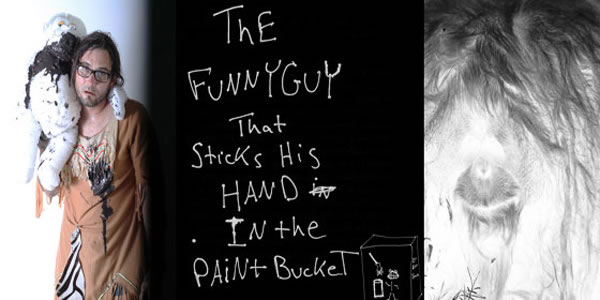 ThE
FUNNYGUY
That
Sticks His
HAND in
IN the
PAint BuckET